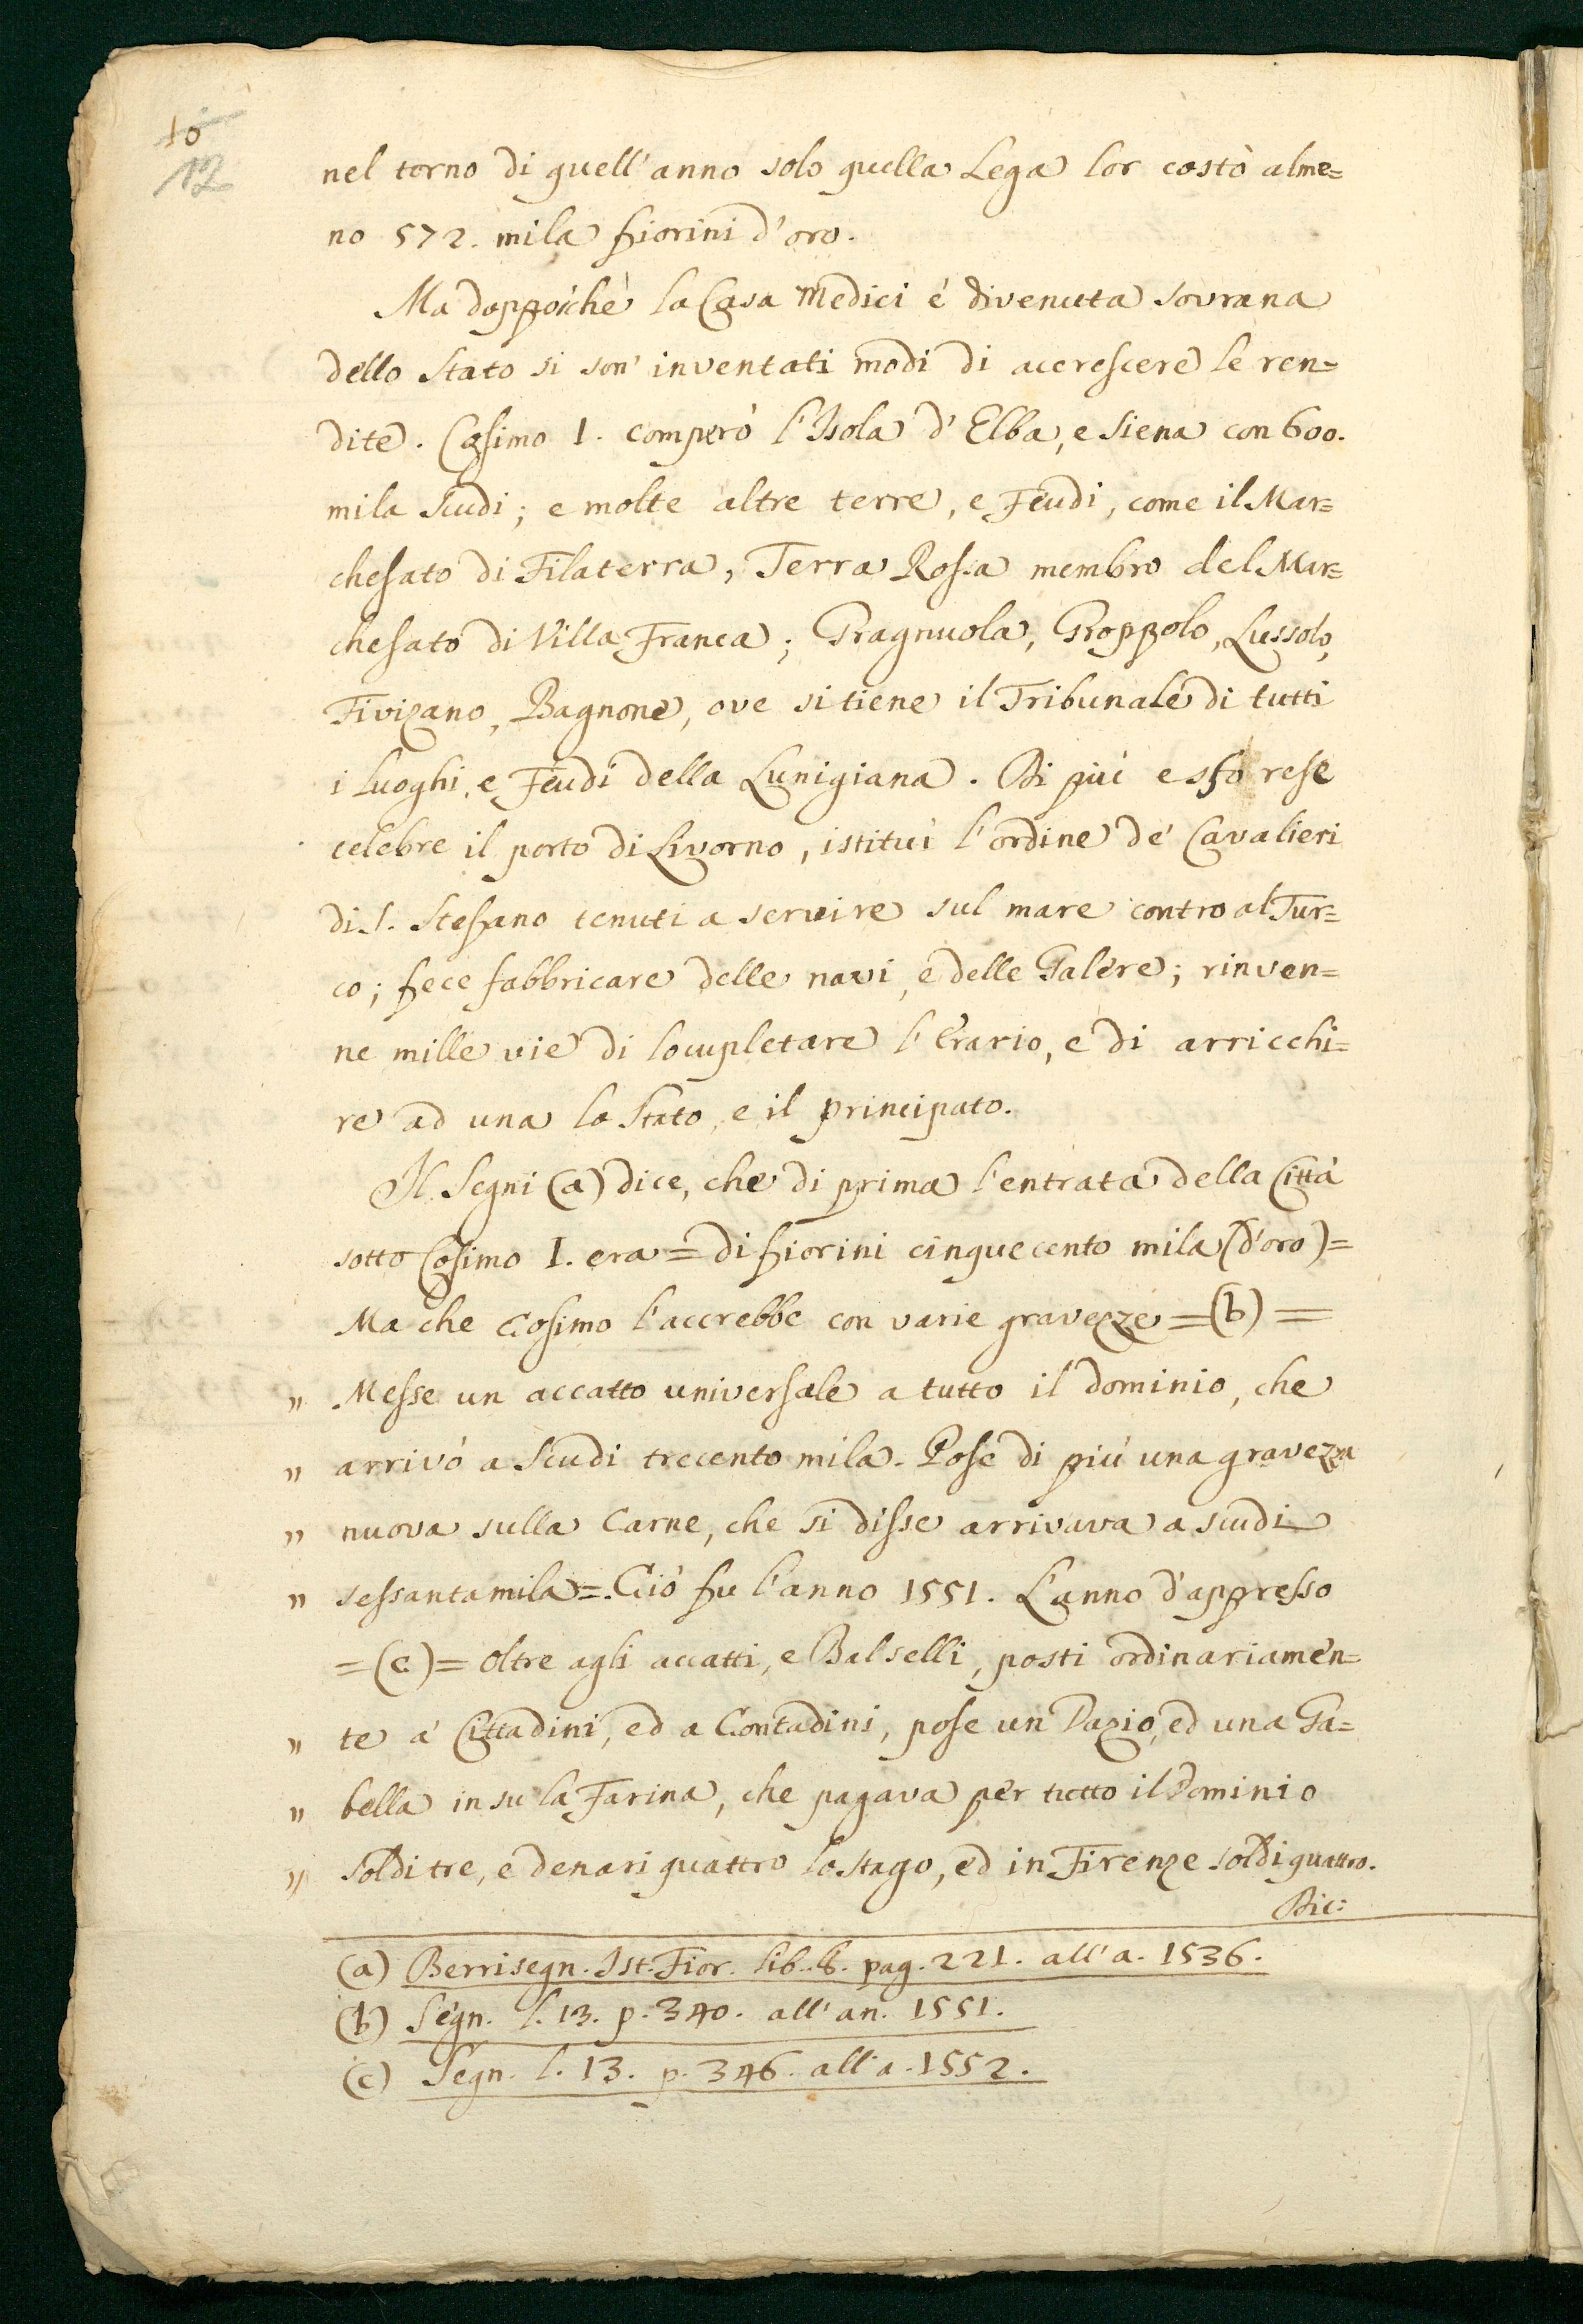 10
12
nel torno di quell'anno solo quella Lega lor costò alme=
no 572. mila fiorini d'oro.
Ma doppoichè la Casa Medici è divenuta sovrana
dello Stato si son' inventati modi di accrescere le ren=
dite. Cosimo I. comperò l'Isola d'Elba, e Siena con 600.
mila scudi; e molte altre terre, e Feudi, come il Mar=
chesato di Filaterra, Terra Rossa membro del Mar=
chesato di Villa Franca; Gragnuola, Groppolo, Lussolo,
Fivizano, Bagnone, ove si tiene il Tribunale di tutti
i Luoghi, e Feudi della Lunigiana. Di più esso rese
celebre il porto di Livorno, istituì l'ordine de' Cavalieri
di S. Stefano tenuti a servire sul mare contro al Tur=
co; fece fabbricare delle navi, e delle Galere; rinven=
ne mille vie di locupletare l'Erario, e di arricchi=
re ad una lo Stato, e il principato.
Il Segni (a) dice, che di prima l'entrata della Città
sotto Cosimo I. era = di fiorini cinquecento mila (d'oro) =
Ma che Cosimo l'accrebbe con varie gravezze = (b) =
" Messe un accatto universale a tutto il dominio, che
" arrivò a Scudi trecento mila. Pose di più una gravezza
" nuova sulla Carne, che si disse arrivava a scudi
" sessantamila =. Ciò fu l'anno 1551. L'anno d'appresso
= (c) = oltre agli accatti, e Balselli, posti ordinariamen=
" te a' Cittadini, ed a Contadini, pose un Dazio, ed una Ga=
" bella in su la Farina, che pagava per tutto il Dominio
" soldi tre, e denari quattro lo stago, ed in Firenze soldi quattro.
Dic:
(a) Berrisegn. Ist. Fior. lib. 8. pag. 221. all'a. 1536.
(b) Segn. l. 13. p. 340. all'an. 1551.
(c) Segn. l. 13. p. 346. all'a. 1552.